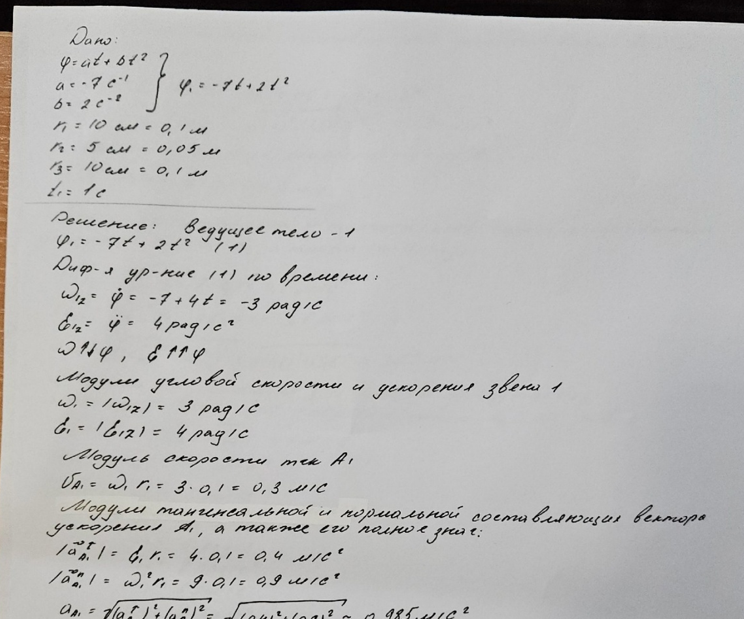 Дано:
φ=at+bt²
a=-7 c⁻¹
b=2 c⁻²
φ₁=-7t+2t²
r₁=10 см=0,1 м
r₂=5 см=0,05 м
r₃=10см=0,1 м
t₁=1c
Решение: Ведущее тело-1
φ₁=-7t+2t² (1)
Диф-я ур-ние (1) по времени:
ω₁z=φ̇=-7+4t=-3 рад/с
ε₁z=φ̈=4 рад/с²
ω↑↓φ, ε↑↑φ
Модули угловой скорости и ускорения звена 1
ω₁=|ω₁z|=3 рад/с
ε₁=|ε₁z|=4 рад/с
Модуль скорости тчк A₁
υA₁=ω₁r₁=3·0,1=0,3 м/с
Модули тангенсальной и нормальной составляющих вектора
ускорения A₁, а также его полное знач:
|a⃗ᵗA₁|=ε₁r₁=4·0,1=0,4 м/с²
|a⃗ⁿA₁|=ω₁²r₁=9·0,1=0,9 м/с²
aA₁=0,985 м/с²